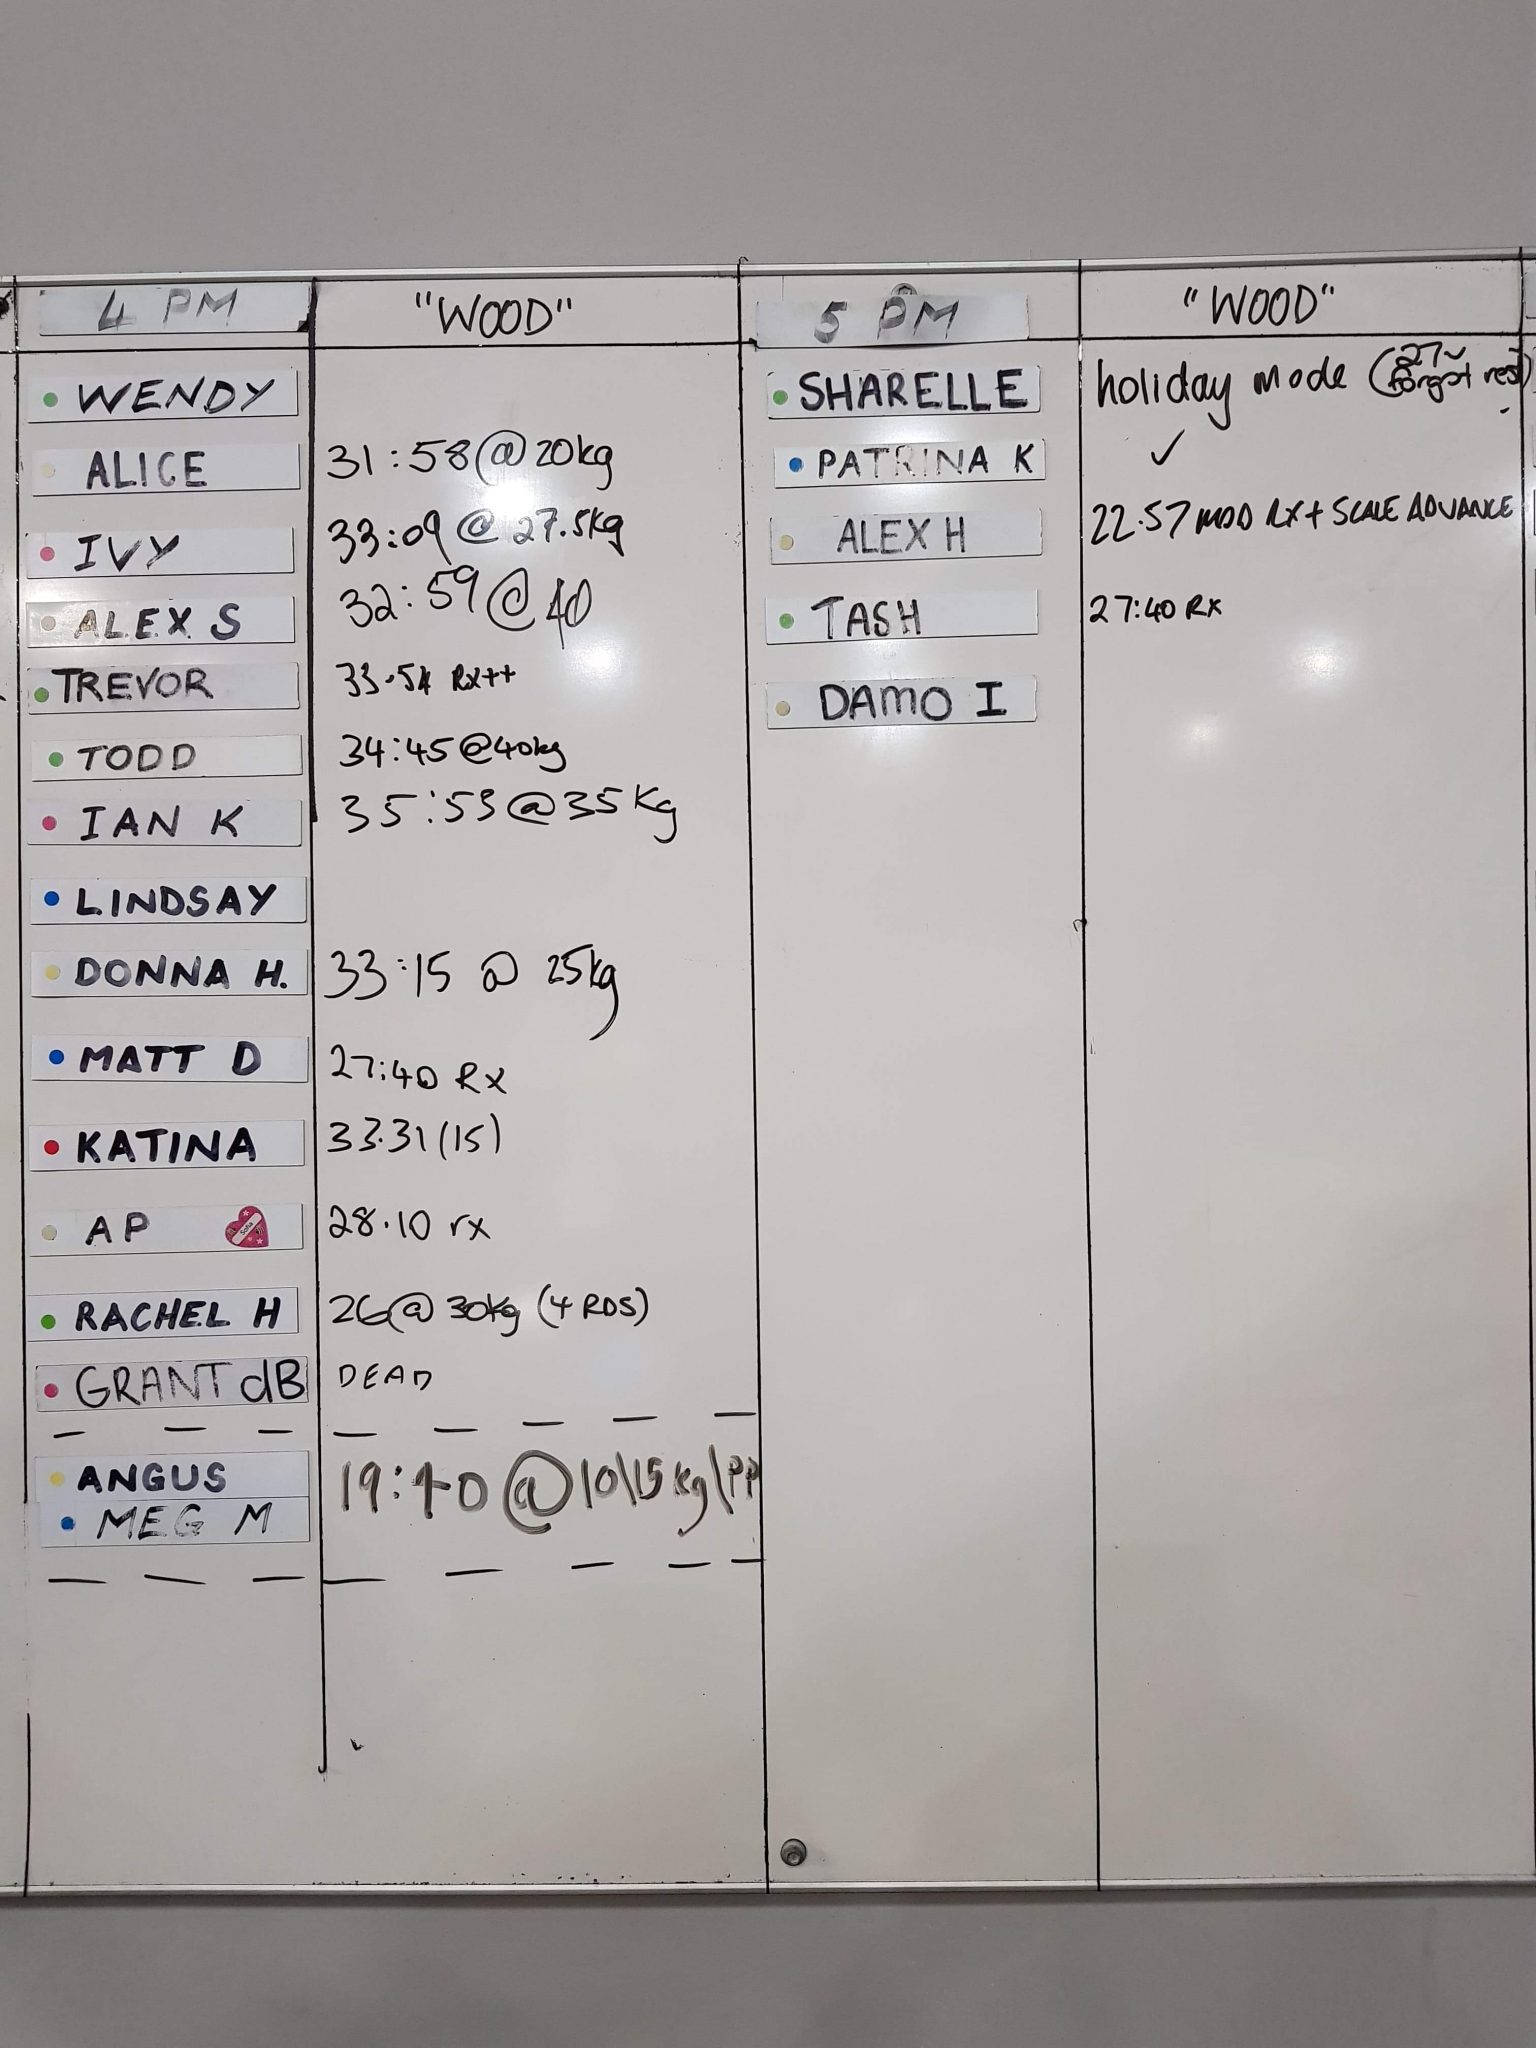 4 PM "WOOD"
WENDY
ALICE 31:58@20kg
IVY 33:09 @ 27.5kg
ALEX S 32:59 @ 40
TREVOR 33.54 Rx++
TODD 34:45@40kg
IAN K 35:53@35Kg
LINDSAY
DONNA H. 33:15 @ 25kg
MATT D 27:40 Rx
KATINA 33.31 (15)
AP 28.10 rx
RACHEL H 26@ 30kg (4 RDS)
GRANT dB DEAD
ANGUS 19:40 @10\15kg\PP
MEG M
5 PM "WOOD"
SHARELLE holiday mode (27~ forgot rest)
PATRINA K ✓
ALEX H 22.57 MOD RX+ SCALE ADVANCE
TASH 27:40 RX
DAMO I